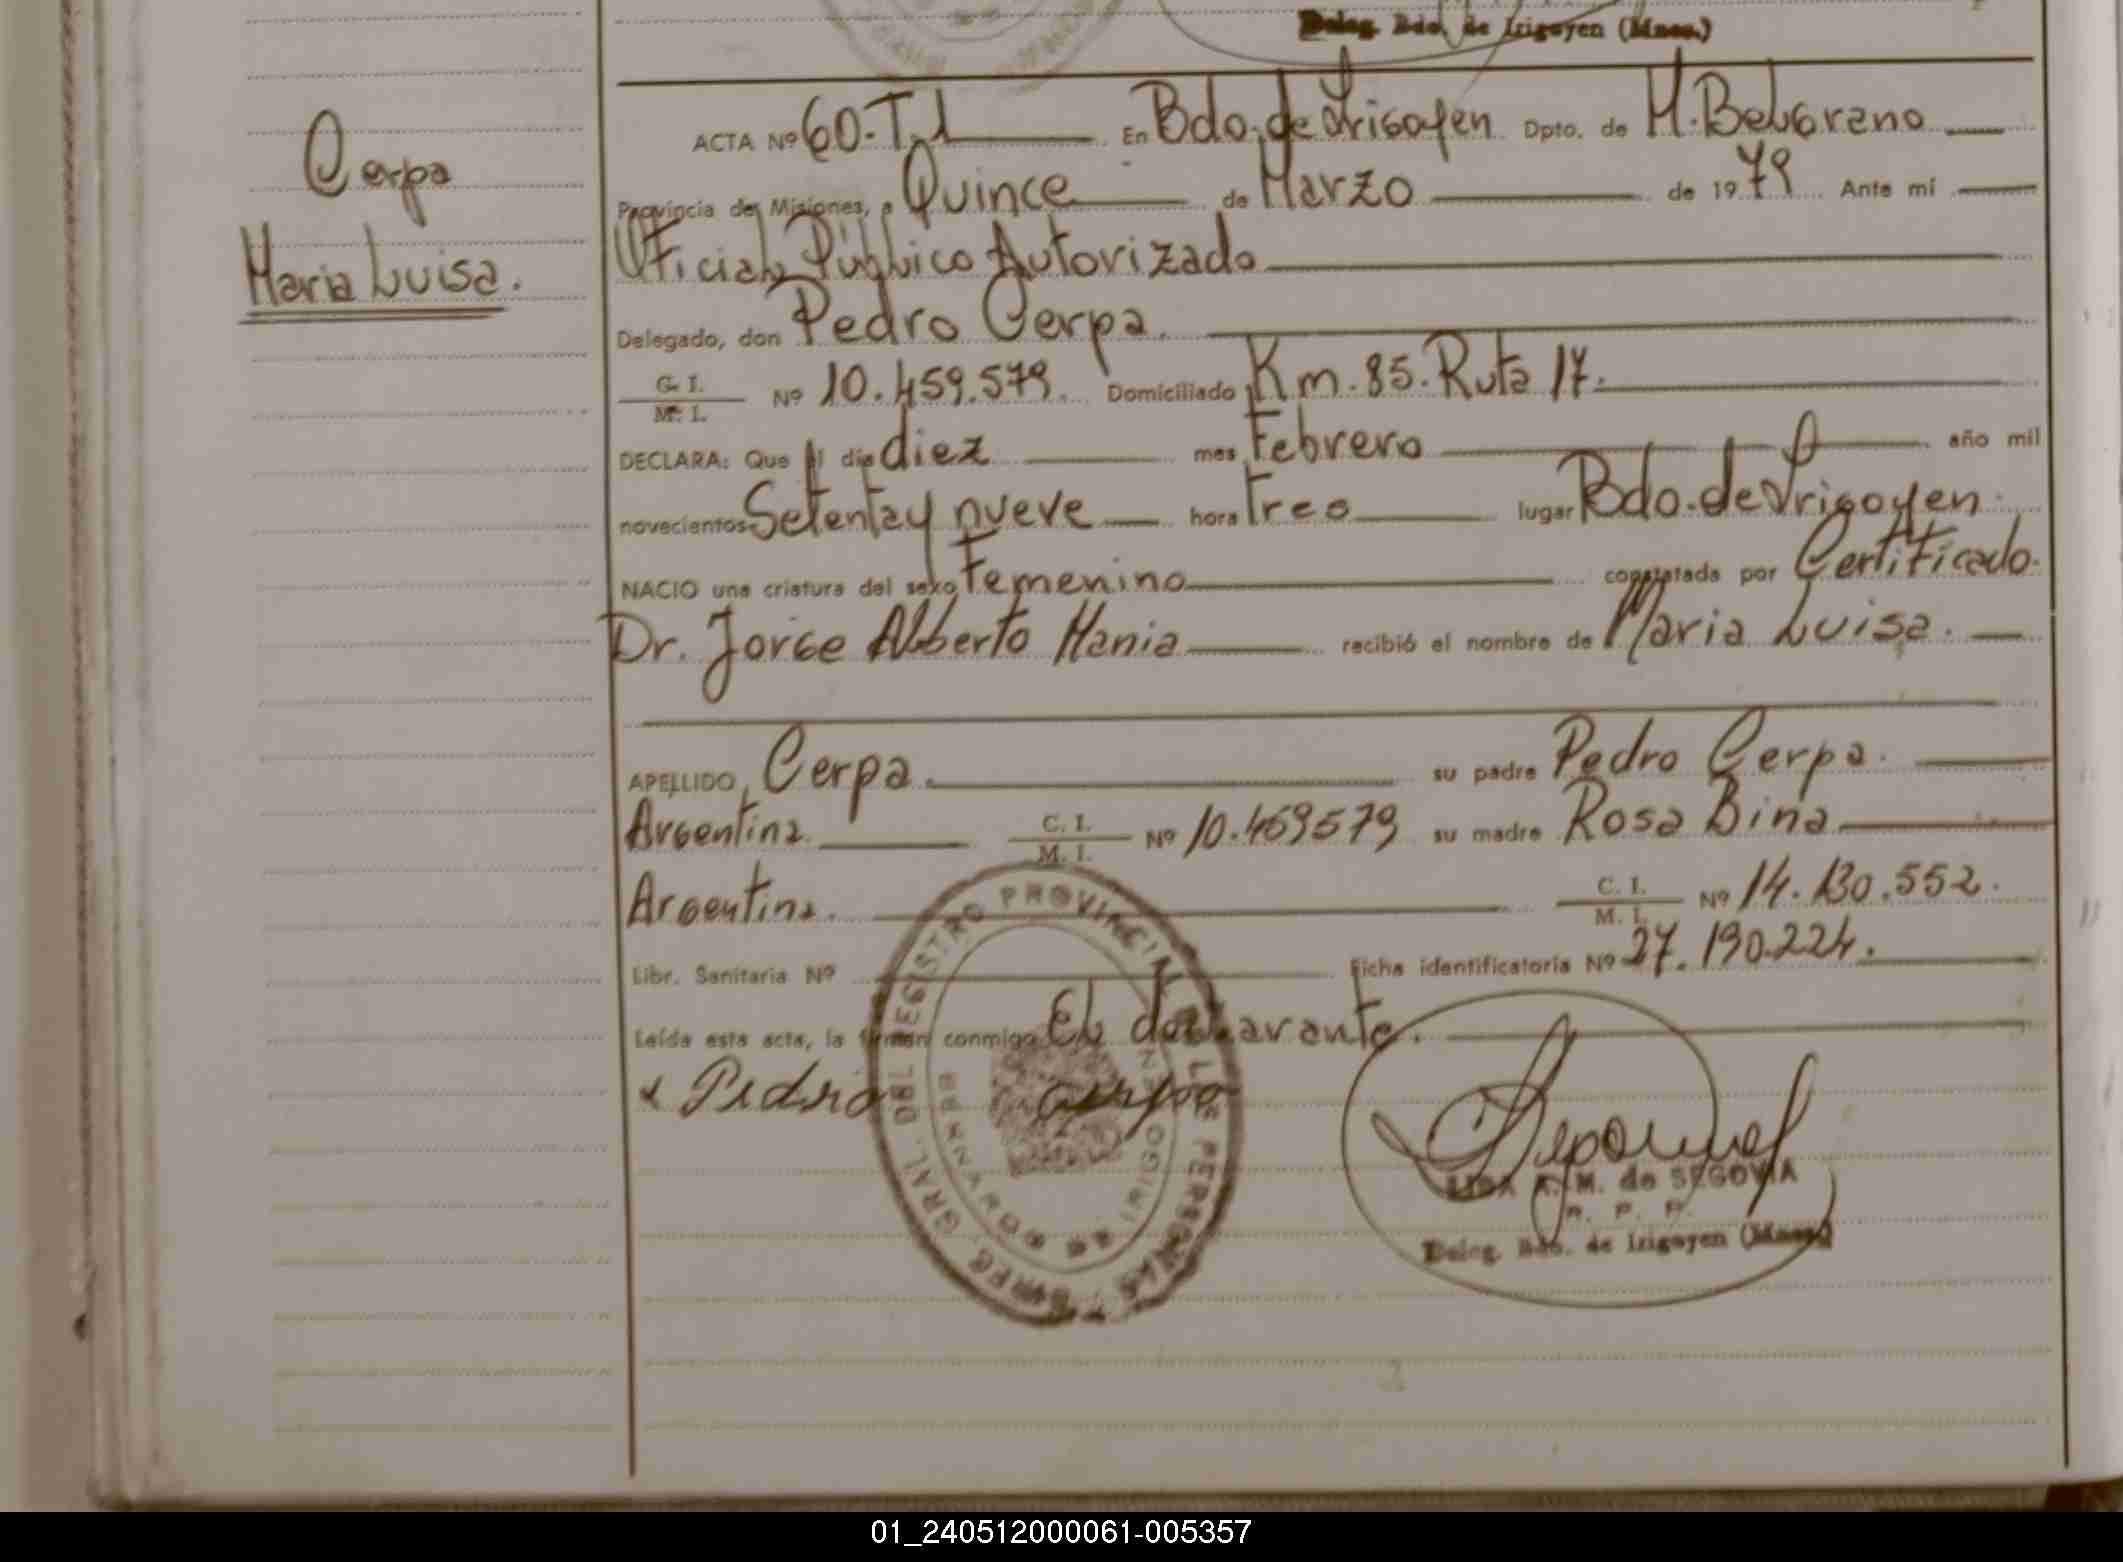 Deleg. Bdo. de Irigoyen (Mnes.)
Cerpa
Maria Luisa.
ACTA Nº 60-T.1 En Bdo. de Irigoyen Dpto. de M. Belgrano
Provincia de Misiones, a Quince de Marzo de 1979 Ante mí
Oficial Público Autorizado
Delegado, don Pedro Cerpa.
C. I.
M. I. Nº 10.459.579. Domiciliado Km. 85. Ruta 17.
DECLARA: Que el día diez mes Febrero año mil
novecientos Setenta y nueve hora tres lugar Bdo. de Irigoyen
NACIO una criatura del sexo Femenino constatada por Certificado.
Dr. Jorge Alberto Mania recibió el nombre de Maria Luisa.
APELLIDO Cerpa. su padre Pedro Cerpa.
Argentina C. I.
M. I. Nº 10.459579 su madre Rosa Bina
Argentina. C. I.
M. I. Nº 14.130.552.
Libr. Sanitaria Nº Ficha identificatoria Nº 27.190.224.
Leída esta acta, la firman conmigo El declarante.
x Pedro cerpa
DEL REGISTRO PROVINCIAL DE LAS PERSONAS
GRAL.
A. M. de SEGOVIA
R. P. P.
Deleg. Bdo. de Irigoyen (Mnes.)
01_240512000061-005357